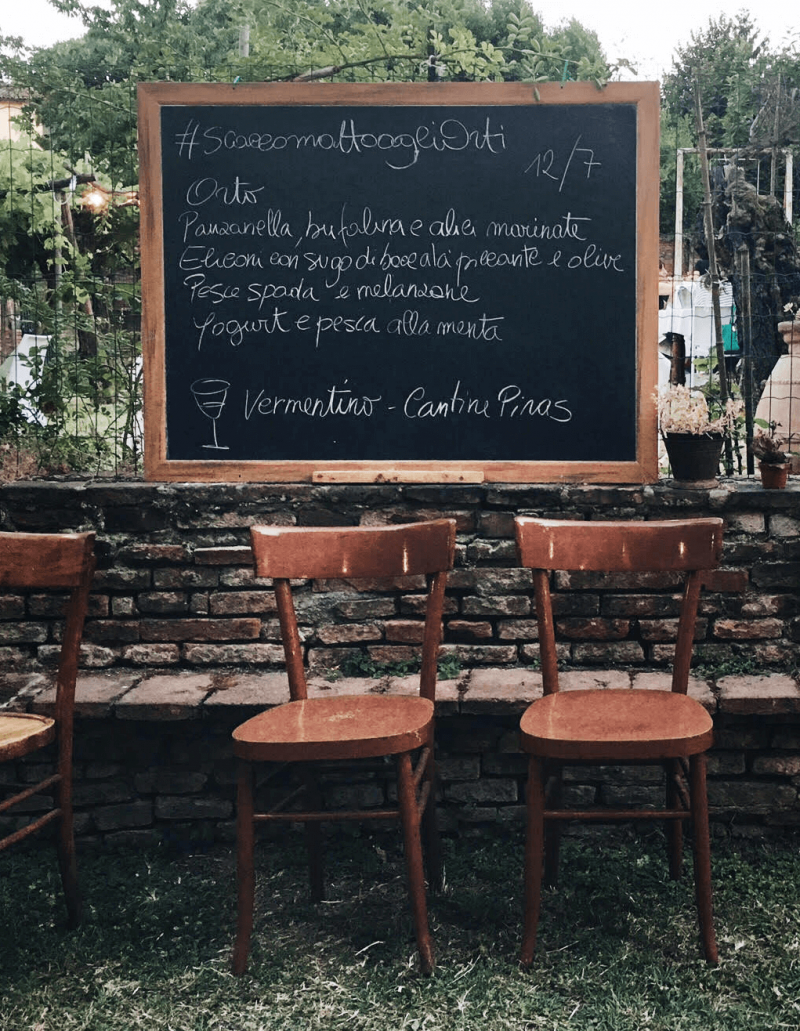 #ScaccomattoagliOrti
12/7
Orto
Panzanella, bufalina e alici marinate
Eliconi con sugo di boccalà piccante e olive
Pesce spada e melanzane
Yogurt e pesca alla menta
Vermentino - Cantine Piras